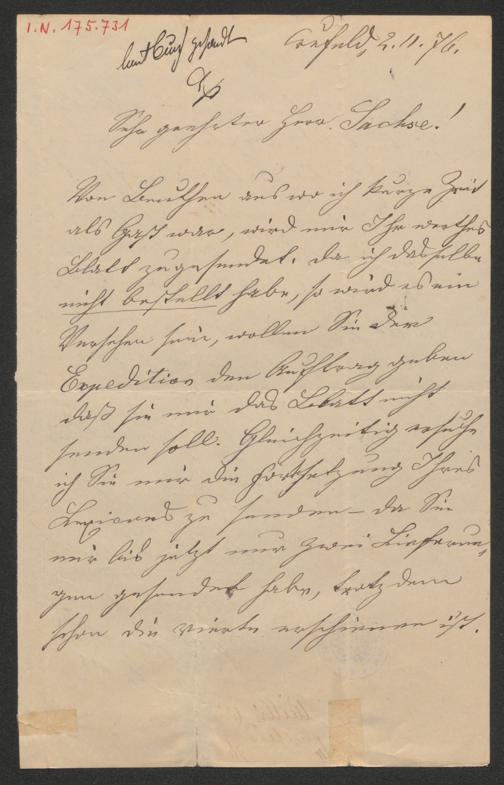 I.N. 175.731
laut Buch gesandt
Crefeld, 2.11.76.
Sehr geehrter Herr Sachse!
Von Beuthen aus wo ich kurze Zeit
als Gast war, wird mir Ihr werthes
Blatt zugesendet. Da ich dasselbe
nicht bestellt habe, so wird es ein
Versehen sein, wollen Sie der
Expedition den Auftrag geben
daß sie mir das Blatt nicht
senden soll. Gleichzeitig ersuche
ich Sie mir die Fortsetzung Ihres
Lexicons zu senden – da Sie
mir bis jetzt nur zwei Lieferun-
gen gesendet habe, trotzdem
schon die vierte erschienen ist.